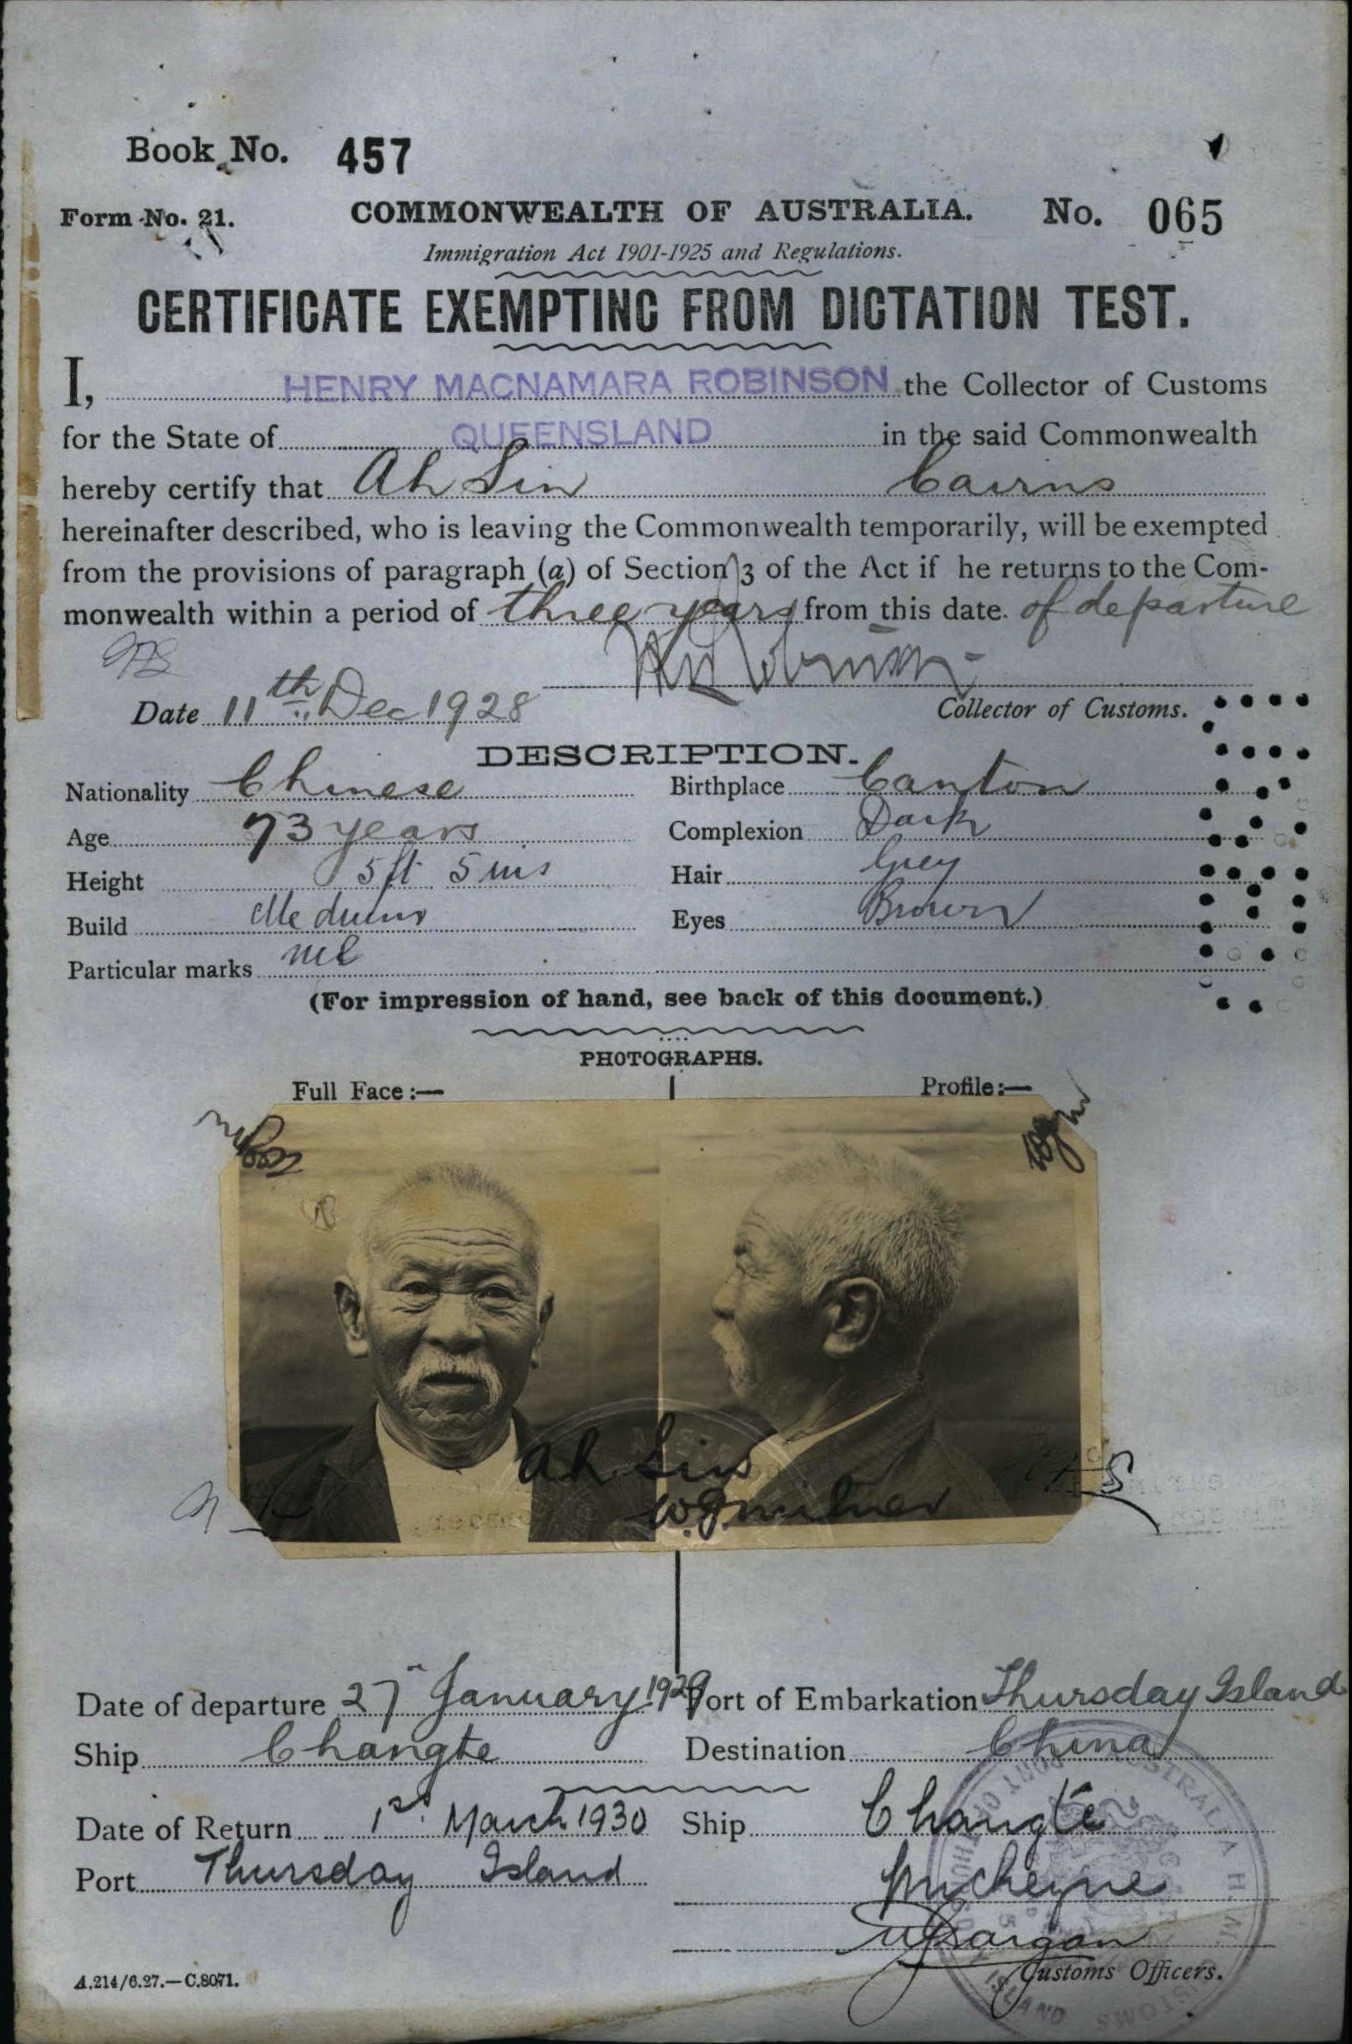 Book No. 457
Form No. 21. COMMONWEALTH OF AUSTRALIA. No. 065
Immigration Act 1901-1925 and Regulations.
CERTIFICATE EXEMPTING FROM DICTATION TEST.
I, HENRY MACNAMARA ROBINSON the Collector of Customs
for the State of QUEENSLAND in the said Commonwealth
hereby certify that Ah Sin Cairns
hereinafter described, who is leaving the Commonwealth temporarily, will be exempted
from the provisions of paragraph (a) of Section 3 of the Act if he returns to the Com-
monwealth within a period of three years from this date. of departure
Date 11th Dec 1928 Collector of Customs.
DESCRIPTION.
Nationality Chinese Birthplace Canton
Age 73 years Complexion Dark
Height 5 ft 5 ins Hair Grey
Build Medium Eyes Brown
Particular marks nil
(For impression of hand, see back of this document.)
PHOTOGRAPHS.
Full Face:— Profile:—
Ah Sin
W.J. Milner
Date of departure 27th January 1929 Port of Embarkation Thursday Island
Ship Changte Destination China
Date of Return 1st March 1930 Ship Changte
Port Thursday Island
Customs Officers.
A.214/6.27.—C.8071.